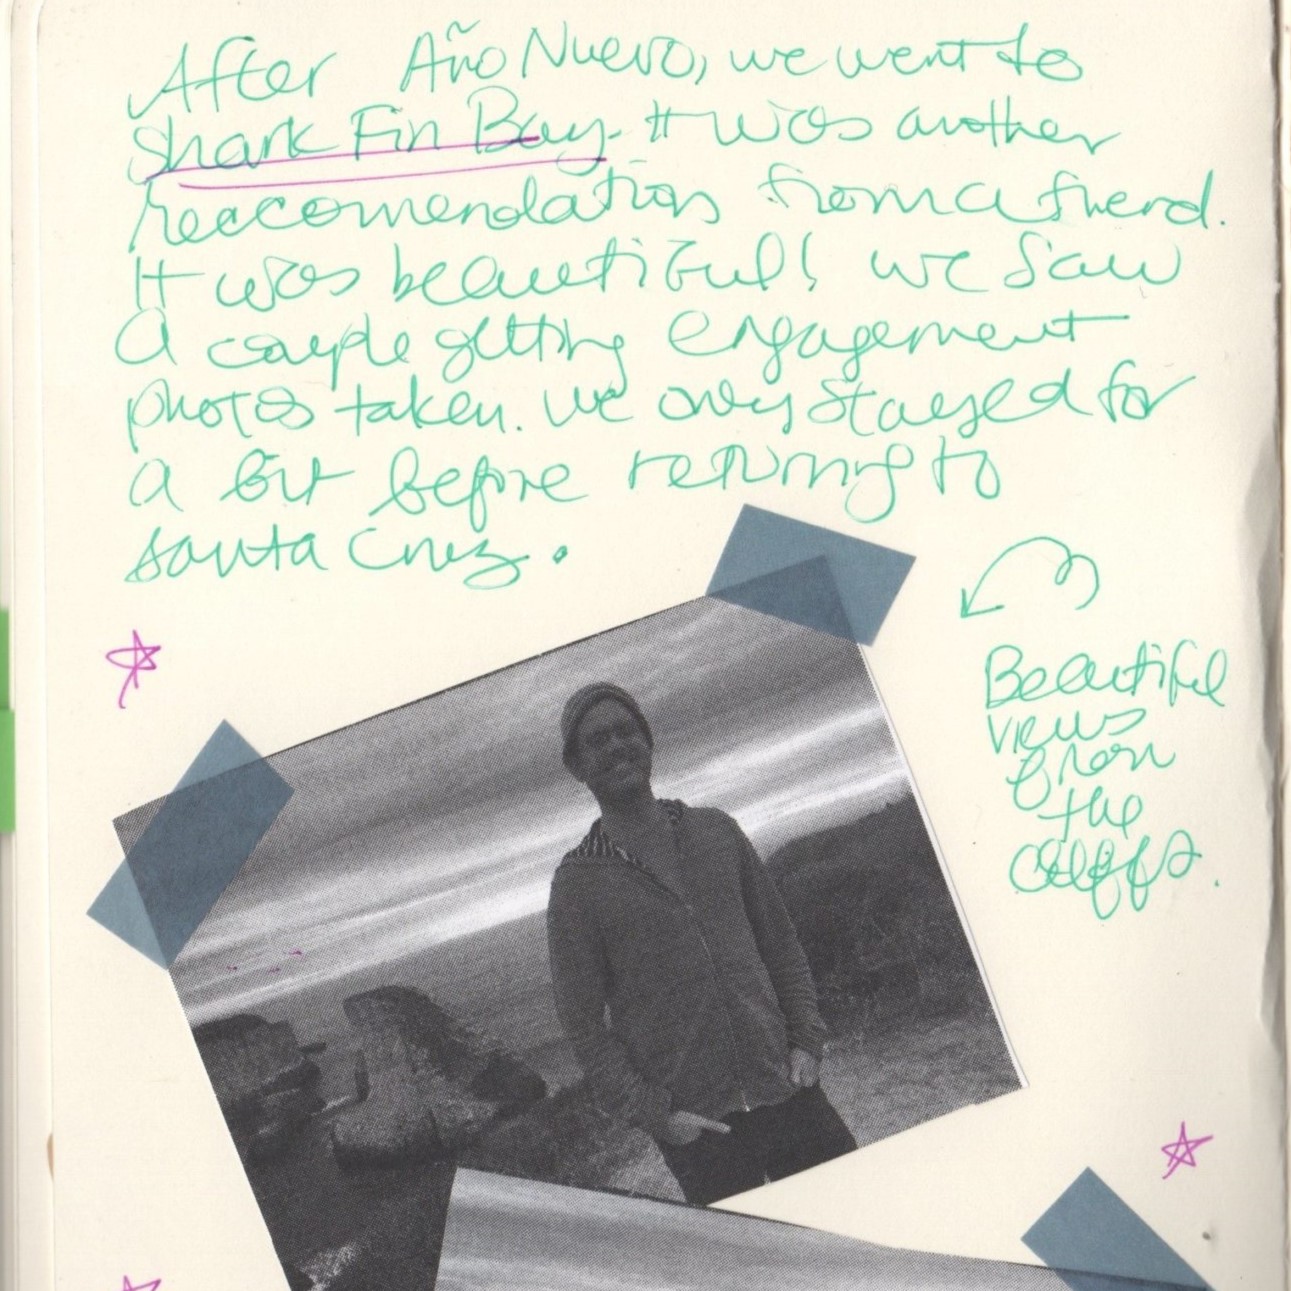 After Año Nuevo, we went to
Shark Fin Bay. It was another
reccomendation from a friend.
It was beautiful! we saw
a couple getting engagement
photos taken. we only stayed for
a bit before returning to
santa cruz.
Beautiful
views
from
the
cliffs.